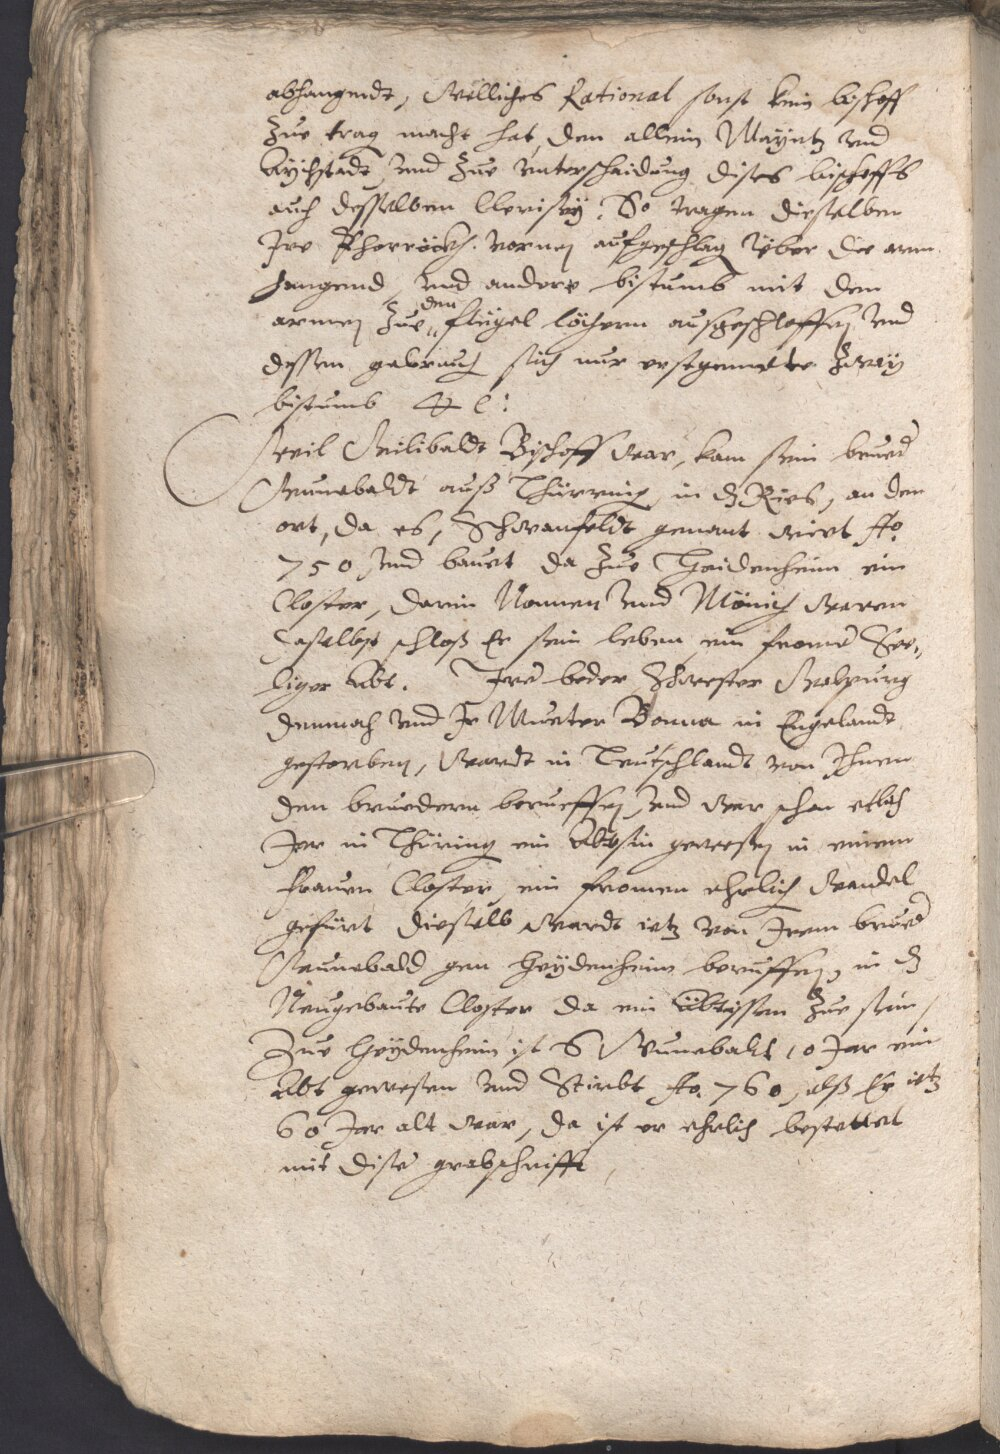 abhangendt, Welliches Rational sonst kein bischoff
Zue trag macht hat, den allein Mayntz und
Aychstadt, und Zue unterschaidung dises bischoffs
auch desselben Clerisey. So tragen dieselben
Ire Khorröckh vornen aufgeschlag über die arm
hangend, und andere bistumb mit den
armen Zue den flügel löchern ausgeschloffen und
dessen gebrauch sich nur erstgemelte Zway
bistumb &c:
Weil Wilibaldt Bischoff war, kam sein brued
Wunebaldt auß Thürring, in dz Ries, an den
ort, da es, Schwanfeldt genant wirt Ao.
750 und bauet da Zue Haidenheim ein
Closter, darin Nonnen und Mönich waren
Daselbst schloß Er sein leben, ein fromer See„
liger Abt. Ire beder Schwester Walpurg
demnach und Ir Mueter Bonna in Engelandt
gestorben, Wardt in Teutschlandt von Ihnen
den bruedern berueffen, und war schon etlich
Jar in Thüring ein Abtsin gewesen in einem
frauen Closter, ein fromen ehrlich Wandel
gefürt dieselb Wardt ietz von Irem brued
Wunebald gen Heydenheim berüffen, in dz
Neugebaute Closter da ein äbtissen Zue sein,
Zue Heydenheim ist S Wunebalt 10 Jar ein
Abt gewesen und Stirbt Ao. 760, alß Er ietz
60 Jar alt war, da ist er ehrlich bestattet
mit diser grabschrifft,